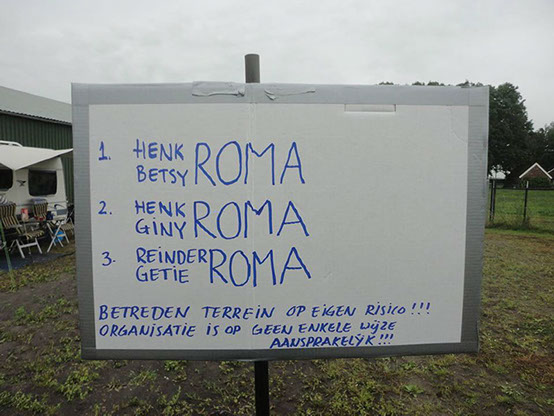 1. HENK ROMA
BETSY
2. HENK ROMA
GINY
3. REINDER ROMA
GETIE
BETREDEN TERREIN OP EIGEN RISICO!!!
ORGANISATIE IS OP GEEN ENKELE WIJZE
AANSPRAKELIJK!!!